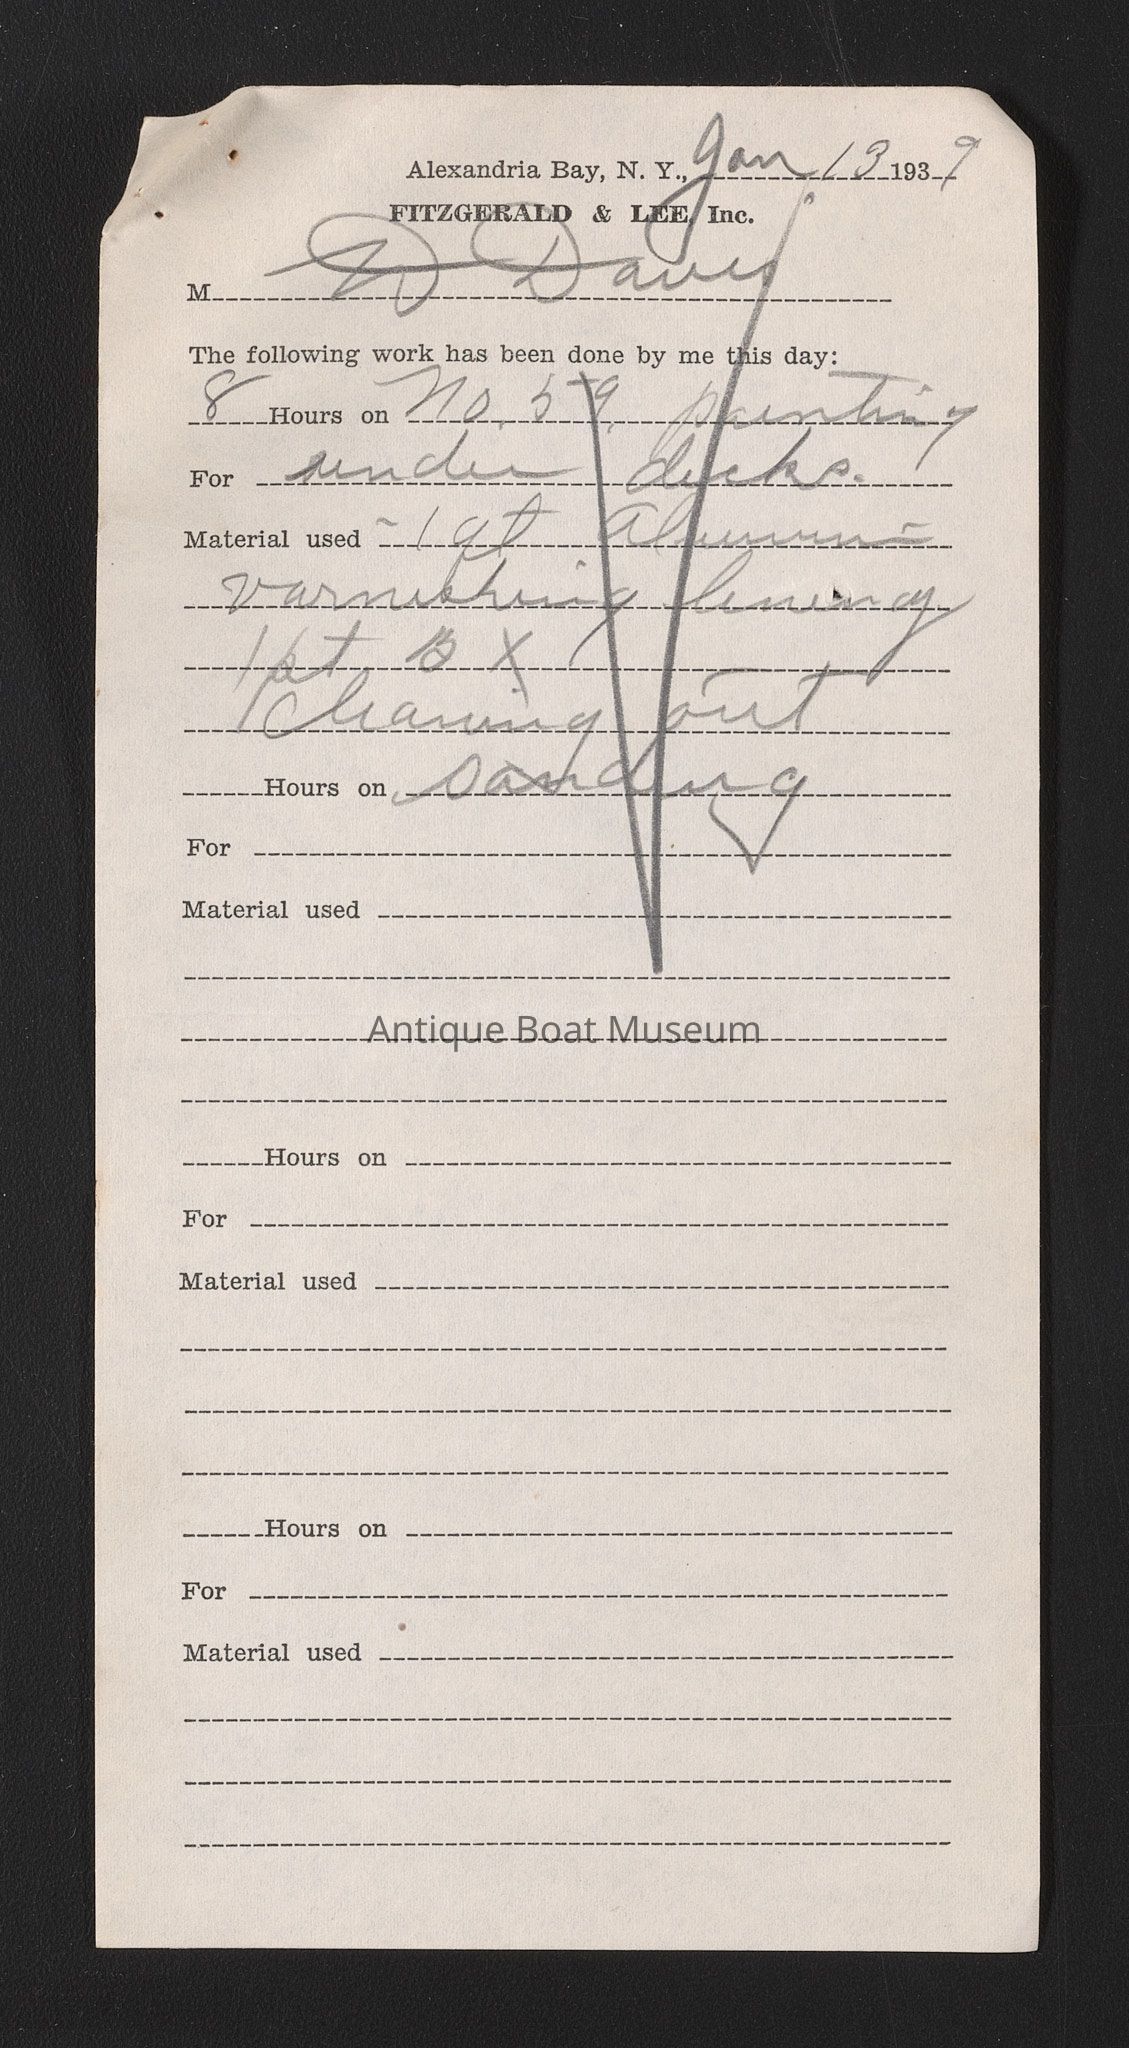 Alexandria Bay, N. Y., Jan 13 1939
FITZGERALD & LEE, Inc.
M W Davis
The following work has been done by me this day:
8 Hours on No. 59. painting
For under decks.
Material used - 1 qt Alumin
varnishing
1 pt. B X
Cleaning out
Hours on sanding
For
Material used
Antique Boat Museum
Hours on
For
Material used
Hours on
For
Material used